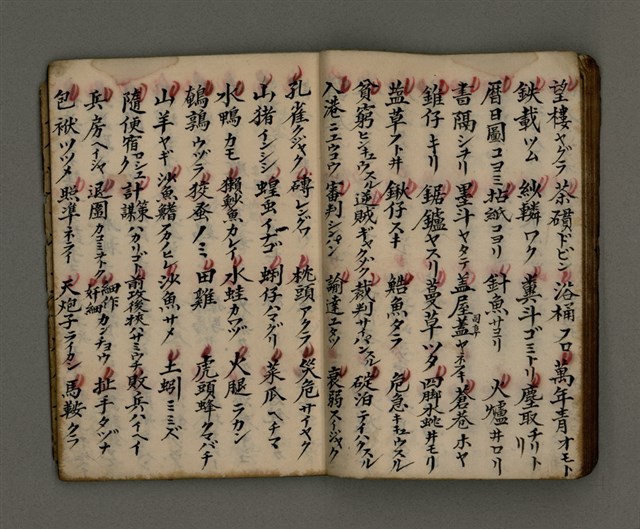 望樓ヤグラ 茶鑽ドビン 浴桶フロ 萬年青オモト
鉄載ツム 紗轔ワク 糞斗ゴミトリ 塵取チリトリ
暦日圖コヨミ 粘紙コヨリ 針魚サヨリ 火爐ヰロリ
書隅シチリ 墨斗ヤタテ 蓋屋蓋ヤネフキ 蒼巷ホヤ
錐仔キリ 鋸鑪ヤスリ 蔓草ツタ 四脚永蛛ヰモリ
藍草アヰ 鍬仔スキ 鱈魚ダラ 危急キキュウスル
貧窮ヒンキュウスル 逆賊ギャクゾク 裁判サイバンスル 碇泊テイハクスル
入港ニュウコウ 審判シンパン 諭達ユタツ 衰弱スイジャク
孔雀クジャク 磚レングワ 枕頭マクラ 災危サイヤク
山猪イシシシ 蝗虫イナゴ 蜊仔ハマグリ 菜瓜ヘチマ
水鴨カモ 獺魦魚カレイ 水蛙カワヅ 火腿ラカン
鵪鶉ウヅラ 狡蚤ノミ 田雞 虎頭蜂クマバチ
山羊ヤギ 沙魚鰭フカノヒレ 沙魚サメ 土蚓ミミズ
隨便宿ク 計策謀ハカリゴト 前攻後挾ハサミウチ 敗兵ハイヘイ
兵房ヘイシャ 退圍カコミヲトク 細作奸細カンチョウ 扯手タヅナ
包袱ツツメ 照準ネライ 大炮子ラカン 馬鞍クラ